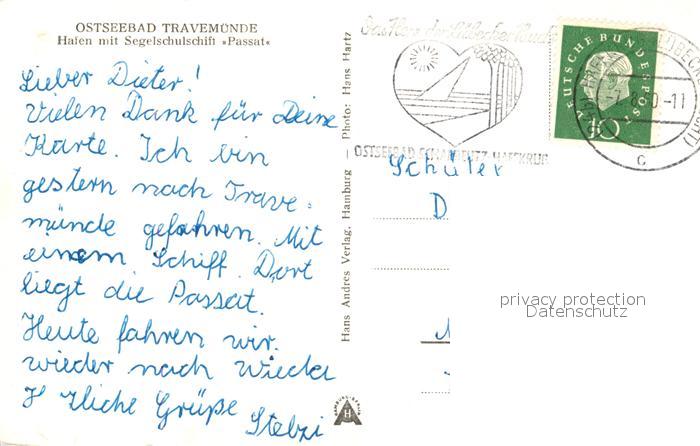 OSTSEEBAD TRAVEMÜNDE
Hafen mit Segelschulschiff »Passat«
Lieber Dieter!
Vielen Dank für Deine
Karte. Ich bin
gestern nach Trave-
münde gefahren. Mit
einem Schiff. Dort
liegt die Passat.
Heute fahren wir
wieder nach
H zliche Grüße
Stebzi
Hans Andres Verlag, Hamburg — Photo: Hans Hartz
Das Herz der Lübecker Bucht
OSTSEEBAD SCHARBEUTZ-HAFFKRUG
DEUTSCHE BUNDESPOST
10
-11
c
Schüler
D
HAMBURG-BERLIN
H
privacy protection
Datenschutz